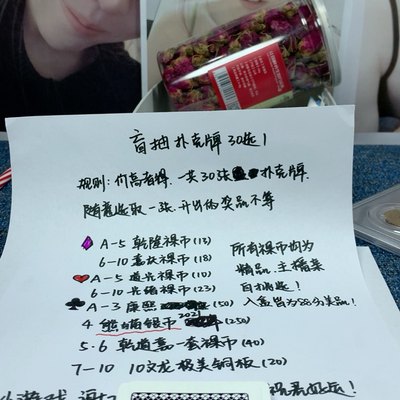 盲抽扑克牌 30选1
规则: 价高者得. 一共30张扑克牌.
随意选取一张. 开出的奖品不等
A-5 乾隆裸币 (13)
6-10 嘉庆裸币 (18)
A-5 道光裸币 (10)
6-10 光绪裸币 (23)
A-3 康熙 (50)
4 熊猫银币 2021 (250)
5.6 乾道嘉一套裸币 (40)
7-10 10文龙极美铜板 (20)
所有裸币均为
精品. 主播亲
自挑选!
入盒皆为 美品!